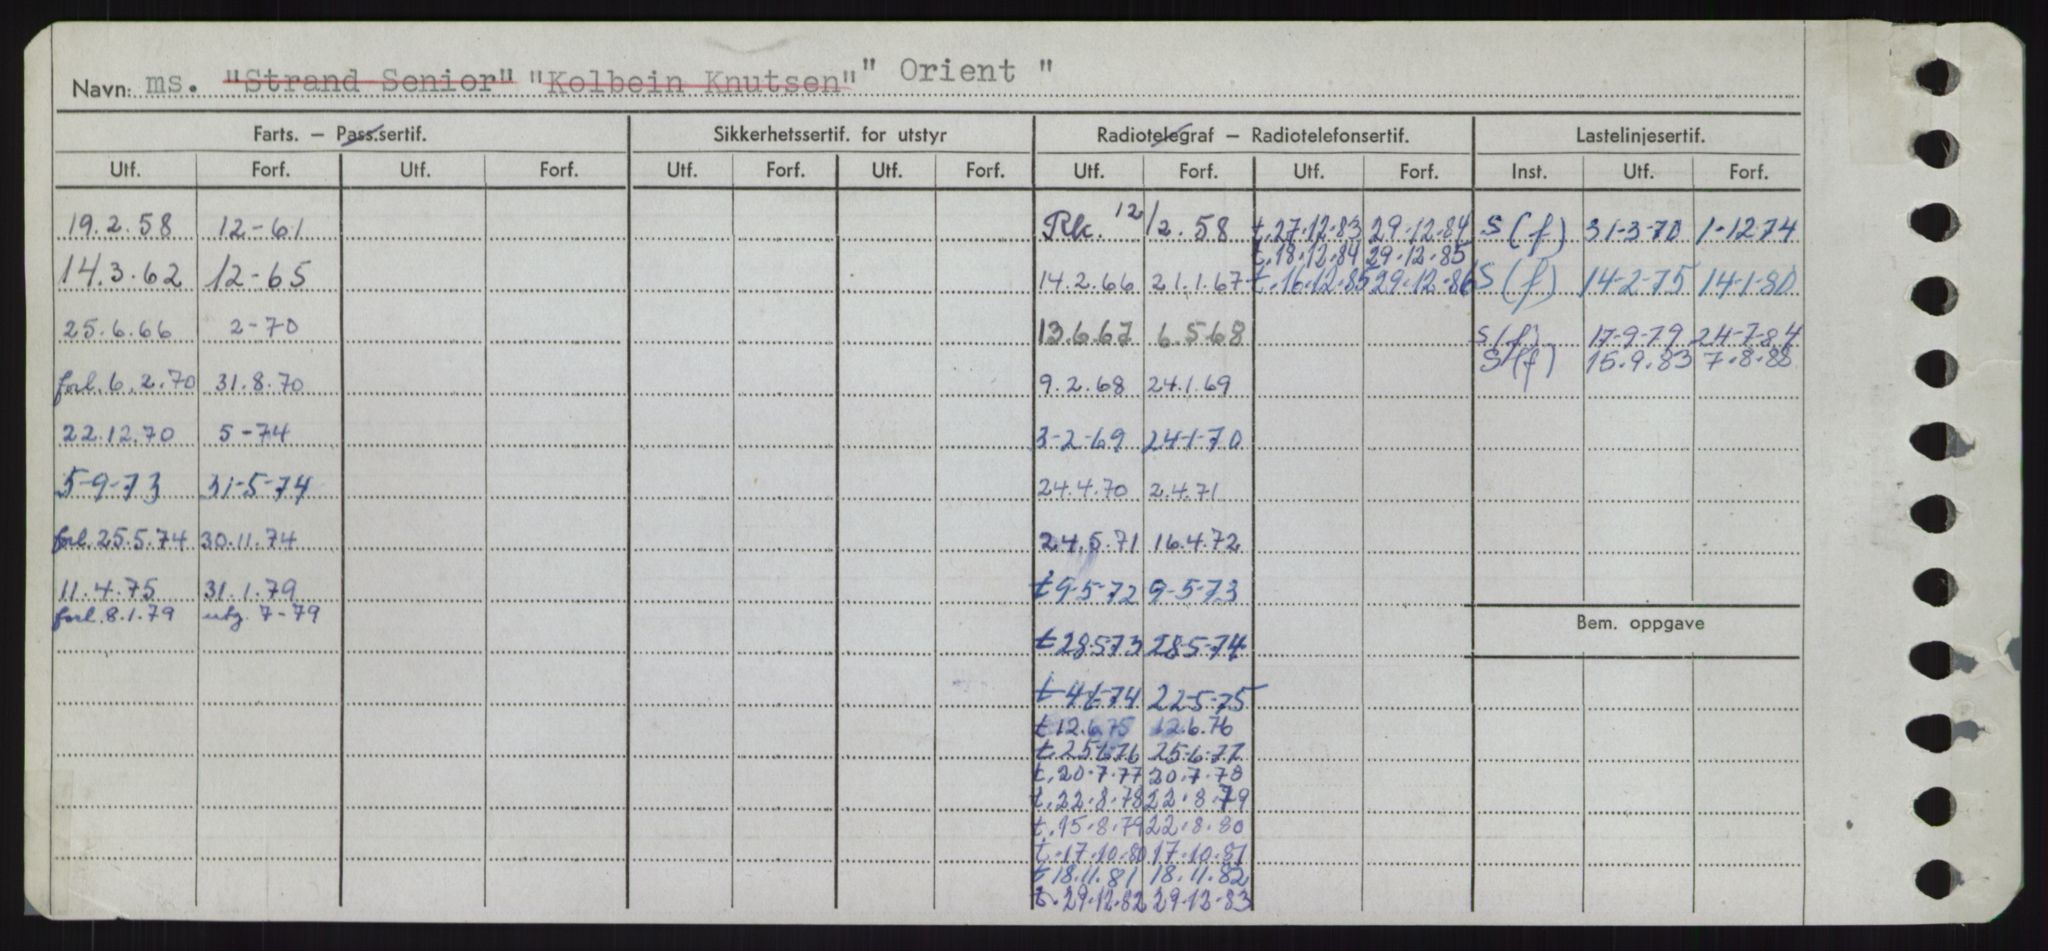 Navn: ms. "Strand Senior" "Kolbein Knutsen" " Orient "
Farts. – Pass.sertif. Sikkerhetssertif. for utstyr Radiotelegraf – Radiotelefonsertif. Lastelinjesertif.
Utf. Forf. Utf. Forf. Utf. Forf. Utf. Forf. Utf. Forf. Utf. Forf. Inst. Utf. Forf.
19.2.58 12-61 Rk. 12/2.58 t.27.12.83 29.12.84 S(f) 31-3-70 1-12-74
t.18.12.84 29.12.85
14.3.62 12-65 14.2.66 21.1.67 t.16.12.85 29.12.86 S(f) 14-2-75 14-1-80
25.6.66 2-70 13.6.67 6.5.68 S(f) 17-9-79 24-7-84
S(f) 15.9.83 7.8.88
forl. 6.2.70 31.8.70 9.2.68 24.1.69
22.12.70 5-74 3-2-69 24-1-70
5-9-73 31-5-74 24.4.70 2.4.71
forl. 25.5.74 30.11.74 24.5.71 16.4.72
11.4.75 31.1.79 t 9-5-72 9-5-73
forl. 8.1.79 utg. 7-79
Bem. oppgave
t 28.5.73 28-5-74
t 22-5-75
t 12.6.75 12.6.76
t.25.6.76 25.6.77
t.20.7.77 20.7.78
t.22.8.78 22.8.79
t.15.8.79 22.8.80
t.17.10.80 17.10.81
t 18.11.81 18.11.82
t.29.12.82 29.12.83